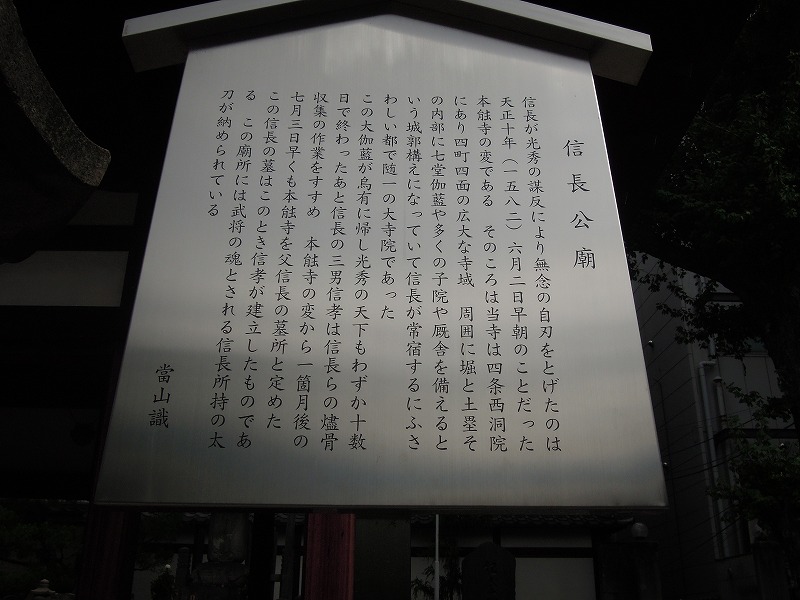 信長公廟
信長が光秀の謀反により無念の自刃をとげたのは
天正十年(一五八二)六月二日早朝のことだった
本能寺の変である　そのころは当寺は四条西洞院
にあり四町四面の広大な寺域　周囲に堀と土塁そ
の内部に七堂伽藍や多くの子院や厩舎を備えると
いう城郭構えになっていて信長が常宿するにふさ
わしい都で随一の大寺院であった
この大伽藍が烏有に帰し光秀の天下もわずか十数
日で終わったあと信長の三男信孝は信長らの燼骨
収集の作業をすすめ　本能寺の変から一箇月後の
七月三日早くも本能寺を父信長の墓所と定めた
この信長の墓はこのとき信孝が建立したものであ
る　この廟所には武将の魂とされる信長所持の太
刀が納められている
當山識